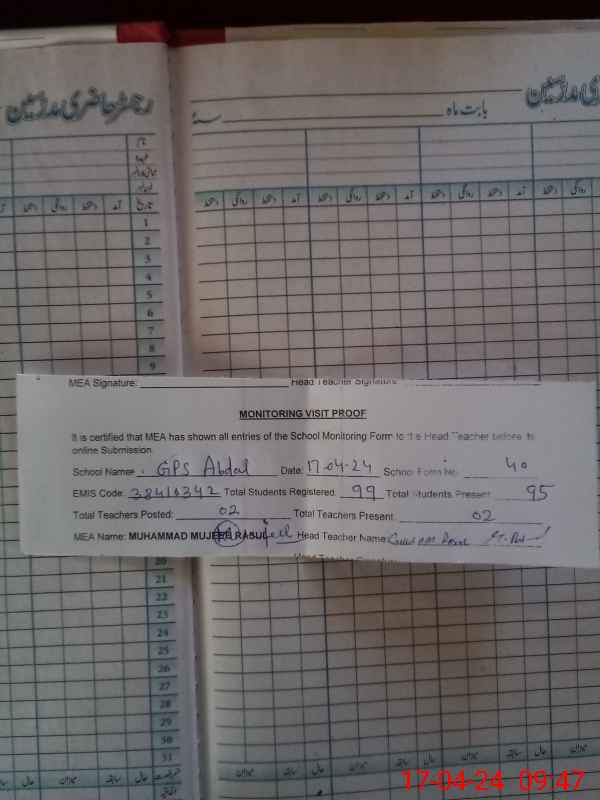 رجسٹر حاضری مدرسین
بابت ماہ سنہ
نام
عہدہ
تاریخ آمد دستخط روانگی دستخط آمد دستخط روانگی دستخط
1
2
3
4
5
6
7
8
9
MEA Signature: Head Teacher Signature
MONITORING VISIT PROOF
It is certified that MEA has shown all entries of the School Monitoring Form to the Head Teacher before its
online Submission
School Name: GPS Abdal Date: 17-04-24 School Form No. 40
EMIS Code: 38410342 Total Students Registered: 99 Total Students Present: 95
Total Teachers Posted: 02 Total Teachers Present: 02
MEA Name: MUHAMMAD MUJEEB RASUL Head Teacher Name:
20
21
22
23
24
25
26
27
28
29
30
31
میزان حال سابقہ میزان حال سابقہ میزان
17-04-24 09:47